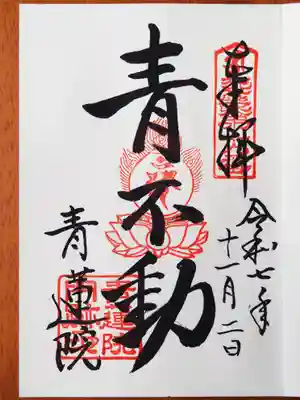 奉拝
令和七年
十一月二日
青不動
青蓮院